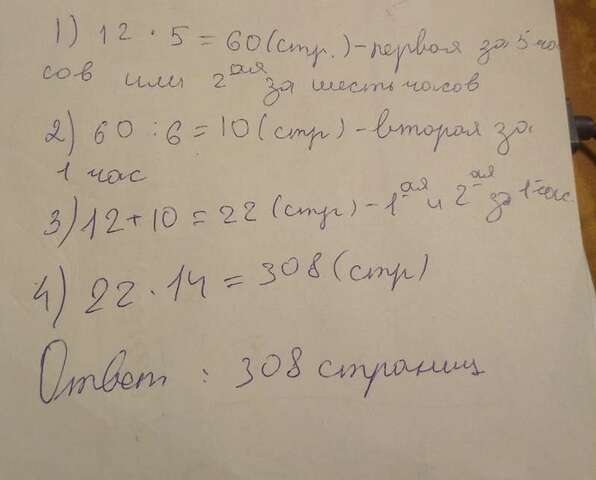 1) 12 · 5 = 60 (стр.) - первая за 5 ча
сов или 2ая за шесть часов
2) 60 : 6 = 10 (стр) - вторая за
1 час
3) 12 + 10 = 22 (стр) - 1ая и 2ая за 1 час.
4) 22 · 14 = 308 (стр)
Ответ : 308 страниц